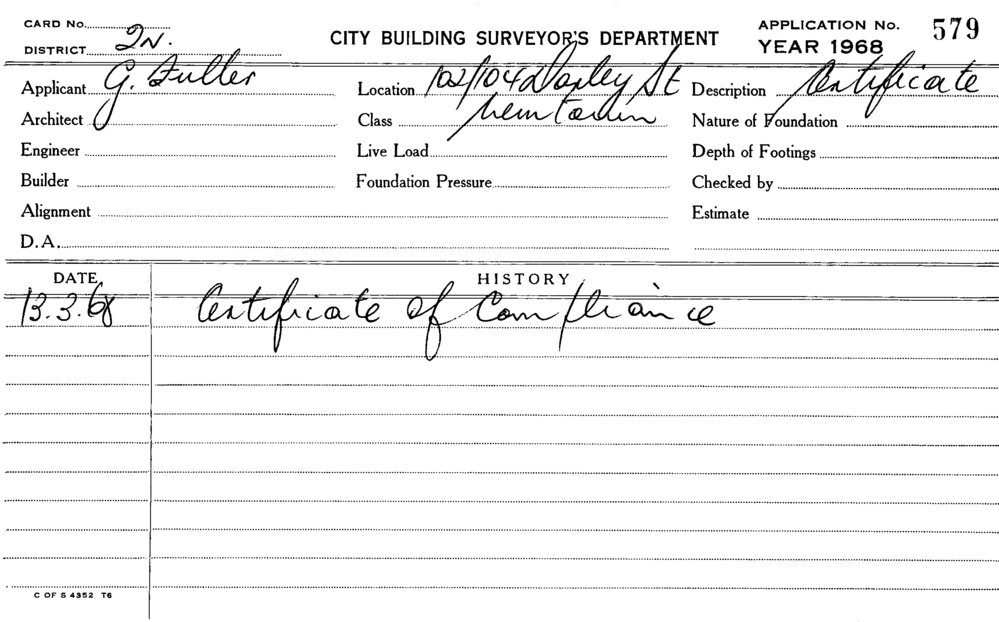 CARD No.
DISTRICT 2N.
CITY BUILDING SURVEYOR'S DEPARTMENT
APPLICATION No. 579
YEAR 1968
Applicant G. Fuller
Location 102/104 Darley St
Description Certificate
Architect
Class Newtown
Nature of Foundation
Engineer
Live Load
Depth of Footings
Builder
Foundation Pressure
Checked by
Alignment
Estimate
D.A.
DATE HISTORY
13.3.68 Certificate of Compliance
C OF S 4352 T6